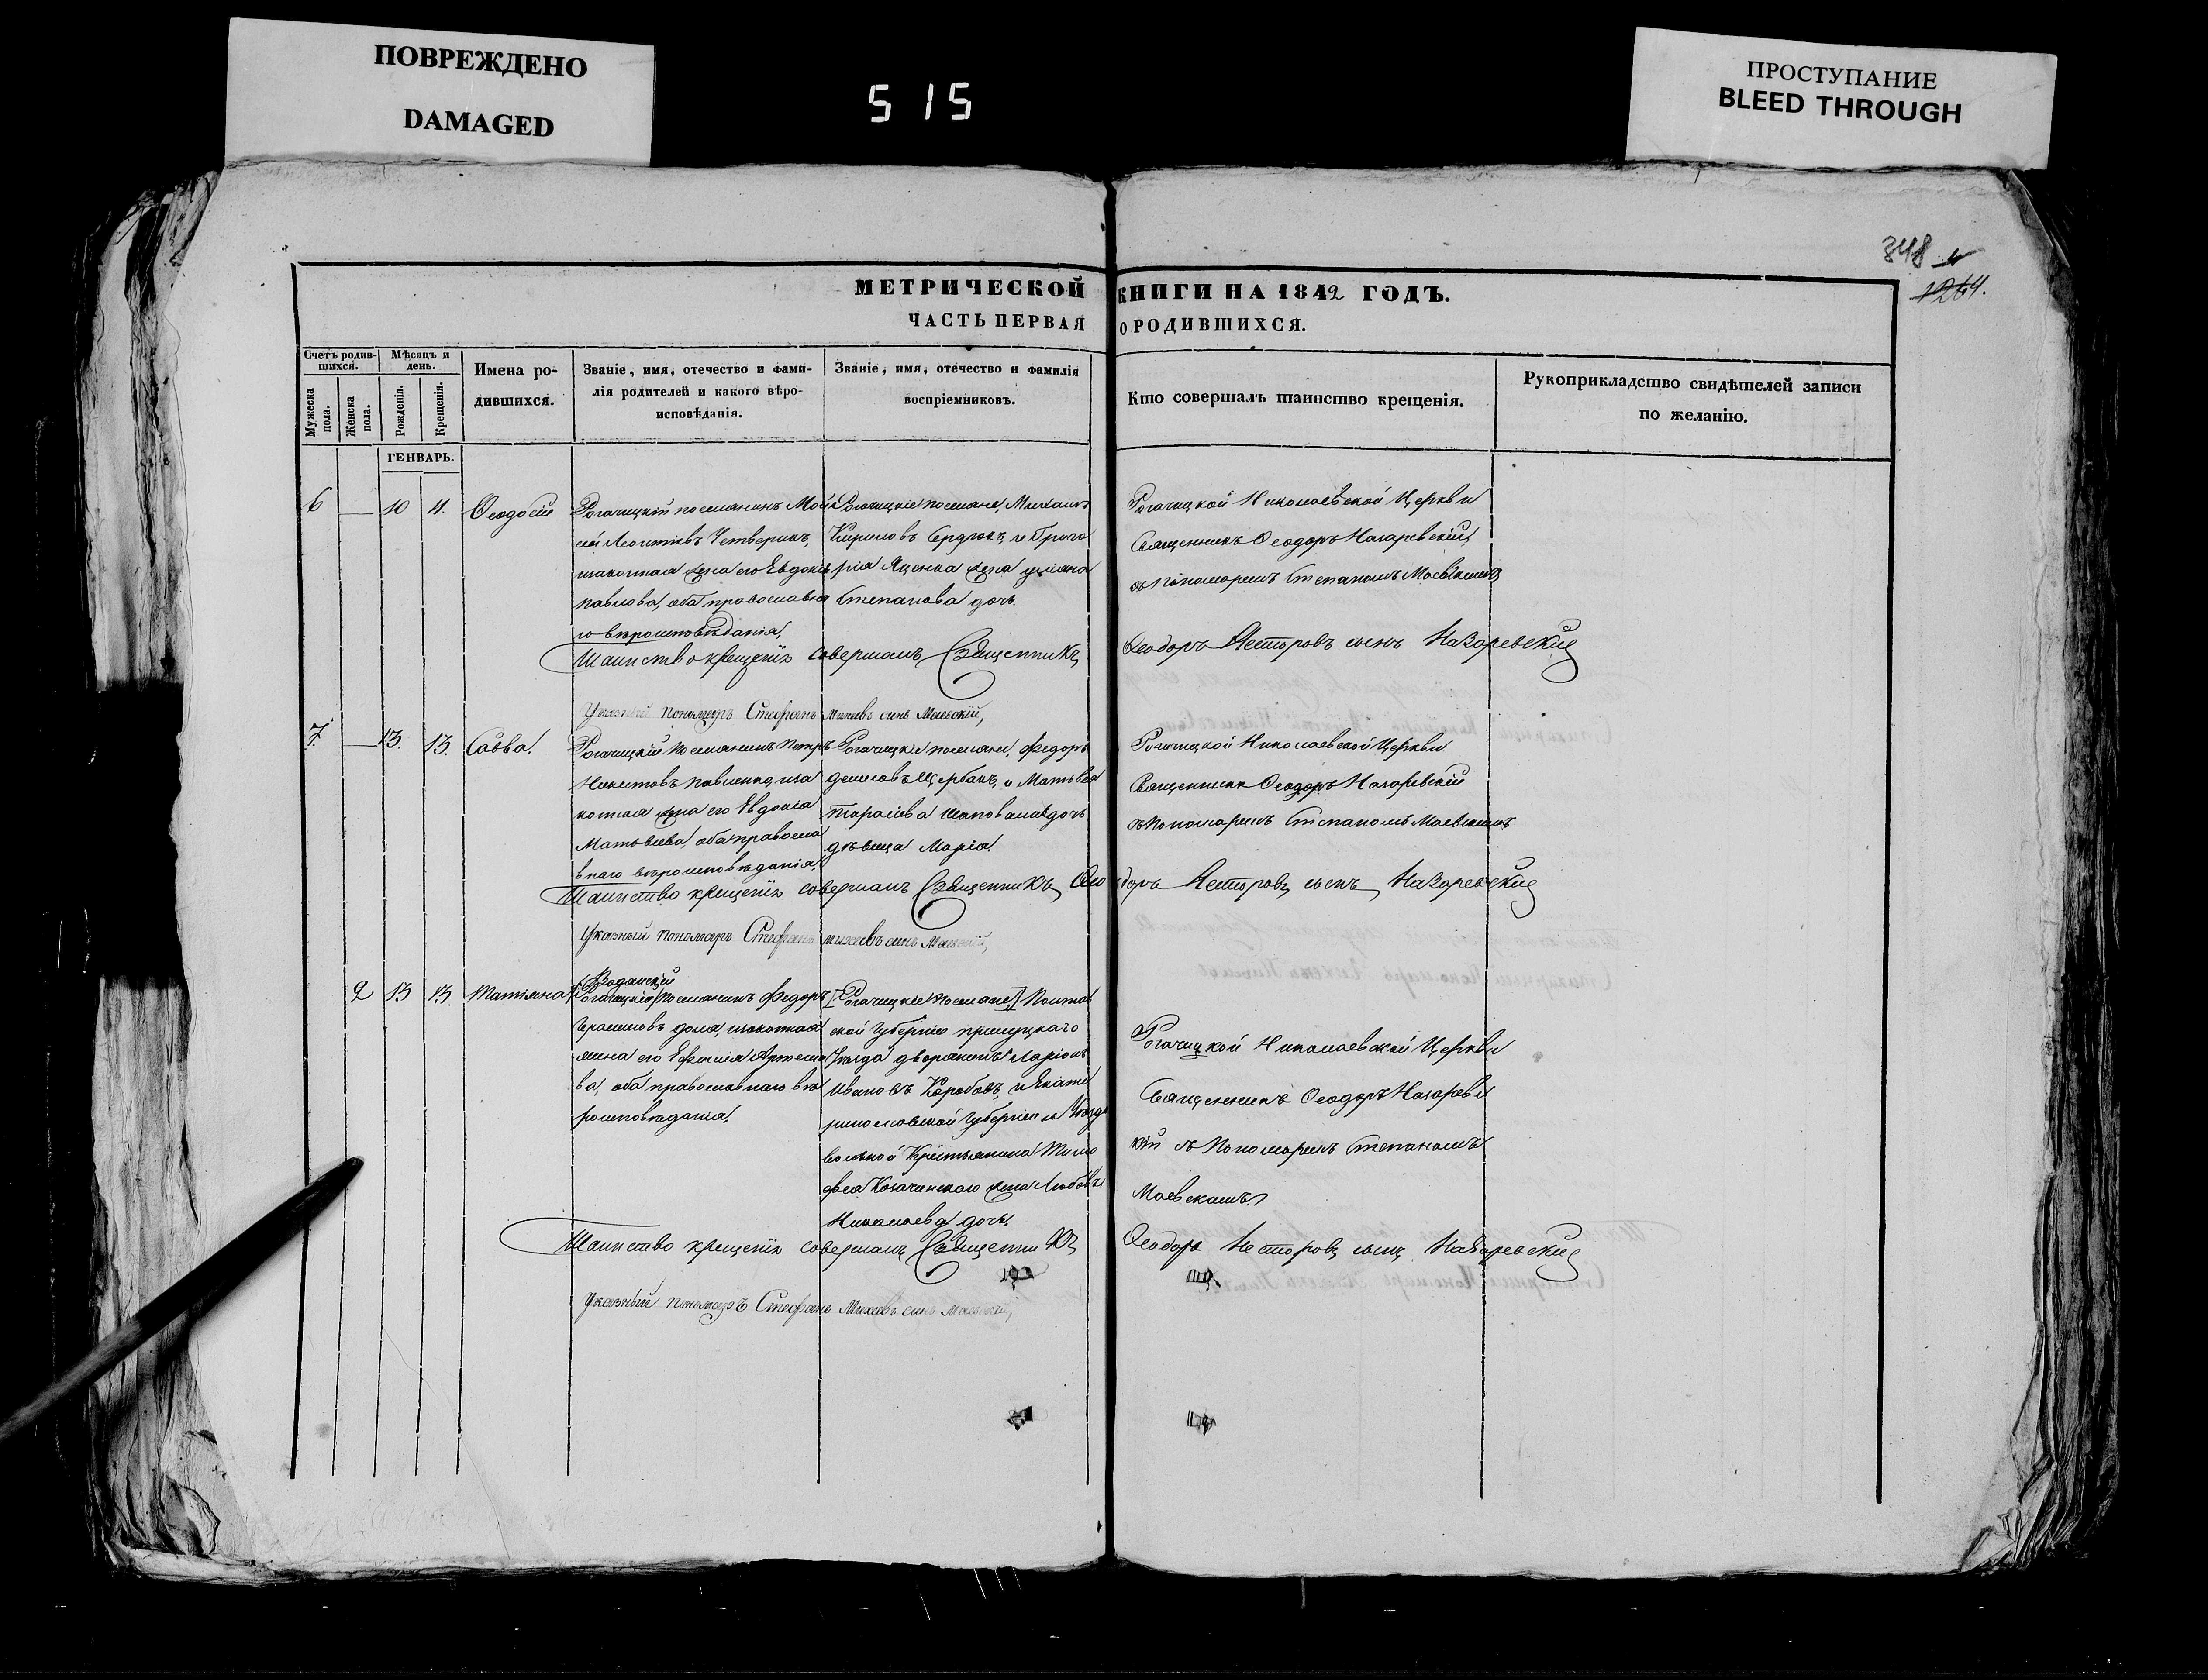 ПОВРЕЖДЕНО
DAMAGED
515
ПРОСТУПАНИЕ
BLEED THROUGH
348
1264.
МЕТРИЧЕСКОЙ КНИГИ НА 1842 ГОДЪ.
ЧАСТЬ ПЕРВАЯ О РОДИВШИХСЯ.
Счетъ родив-
шихся.
Мужеска пола.
Женска пола.
Мѣсяцъ и
день.
Рожденія.
Крещенія.
Имена ро-
дившихся.
Званіе, имя, отечество и фами-
лія родителей и какого вѣро-
исповѣданія.
Званіе, имя, отечество и фамилія
воспріемниковъ.
Кто совершалъ таинство крещенія.
Рукоприкладство свидѣтелей записи
по желанію.
ГЕНВАРЬ.
6 — 10 11. Ѳеодосій
Рогачицкій поселянинъ Мои
сей Леонтіевъ Четверикъ,
законная жена его Евдокія
Павлова, оба православна
го вѣроисповѣданія,
Рогачицкіе поселяне, Михаилъ
Кириловъ Сердюкъ, и Григо
рія Яценка жена
Степанова дочь.
Рогачицкой Николаевской Церкви
Священникъ Ѳеодоръ Назаревскій,
съ Пономаремъ Степаномъ Маевскимъ
Таинство крещенія совершалъ Священникъ Ѳеодоръ Несторовъ сынъ Назаревскій
Указный пономарь Стефанъ Михеевъ сынъ Маевскій,
7. — 13. 13. Савва.
Рогачицкій поселянинъ Петръ
Никитовъ Павленко, за
конная жена его Евдокія
Матвѣева, оба правосла
внаго вѣроисповѣданія,
Рогачицкіе поселяне, Федоръ
Щербакъ, и Матвѣя
Тарасіева Шаповала дочь
дѣвица Марія.
Рогачицкой Николаевской Церкви
Священникъ Ѳеодоръ Назаревскій
съ Пономаремъ Степаномъ Маевскимъ
Таинство крещенія совершалъ Священникъ Ѳеодоръ Несторовъ сынъ Назаревскій
Указный пономарь Стефанъ Михеевъ сынъ Маевскій,
2 13 13. Татіяна
Водянскій
[Рогачицкій] поселянинъ Федоръ
Герасимовъ законная
жена его Ефимія Артемо
ва, оба православнаго вѣ
роисповѣданія,
[Рогачицкіе поселяне,] Полтав
ской Губерніи Прилуцкаго
Уѣзда дворянинъ Ларіонъ
Ивановъ Коробовъ, и Екате
ринославской Губерніи и Уѣзда
вольной Крестьянина Тимо
фея Козачинскаго жена Любовь
Николаева дочь.
Рогачицкой Николаевской Церкви
Священникъ Ѳеодоръ Назаревс
кій съ Пономаремъ Степаномъ
Маевскимъ.
Таинство крещенія совершалъ Священникъ Ѳеодоръ Несторовъ сынъ Назаревскій
Указный пономарь Стефанъ Михеевъ сынъ Маевскій,